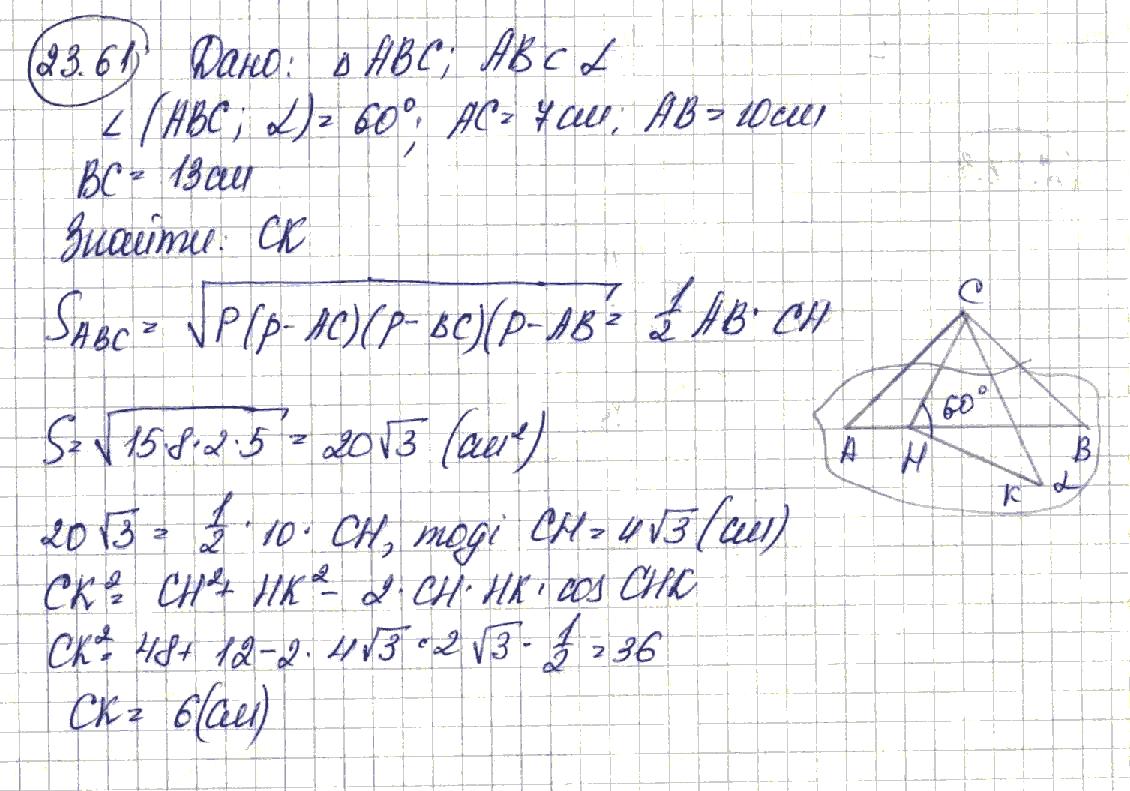 23.61 Дано: Δ ABC; AB ⊂ α
∠ (ABC; α) = 60°; AC = 7 см; AB = 10 см
BC = 13 см
Знайти: CK
S ABC = √P(p - AC)(p - BC)(p - AB = 1/2 AB · CH
S = √15·8·2·5 = 20√3 (см²)
20√3 = 1/2 · 10 · CH, тоді CH = 4√3 (см)
CK² = CH² + HK² - 2 · CH · HK · cos CHK
CK² = 48 + 12 - 2 · 4√3 · 2√3 · 1/2 = 36
CK = 6 (см)
C
60°
A H B
K α